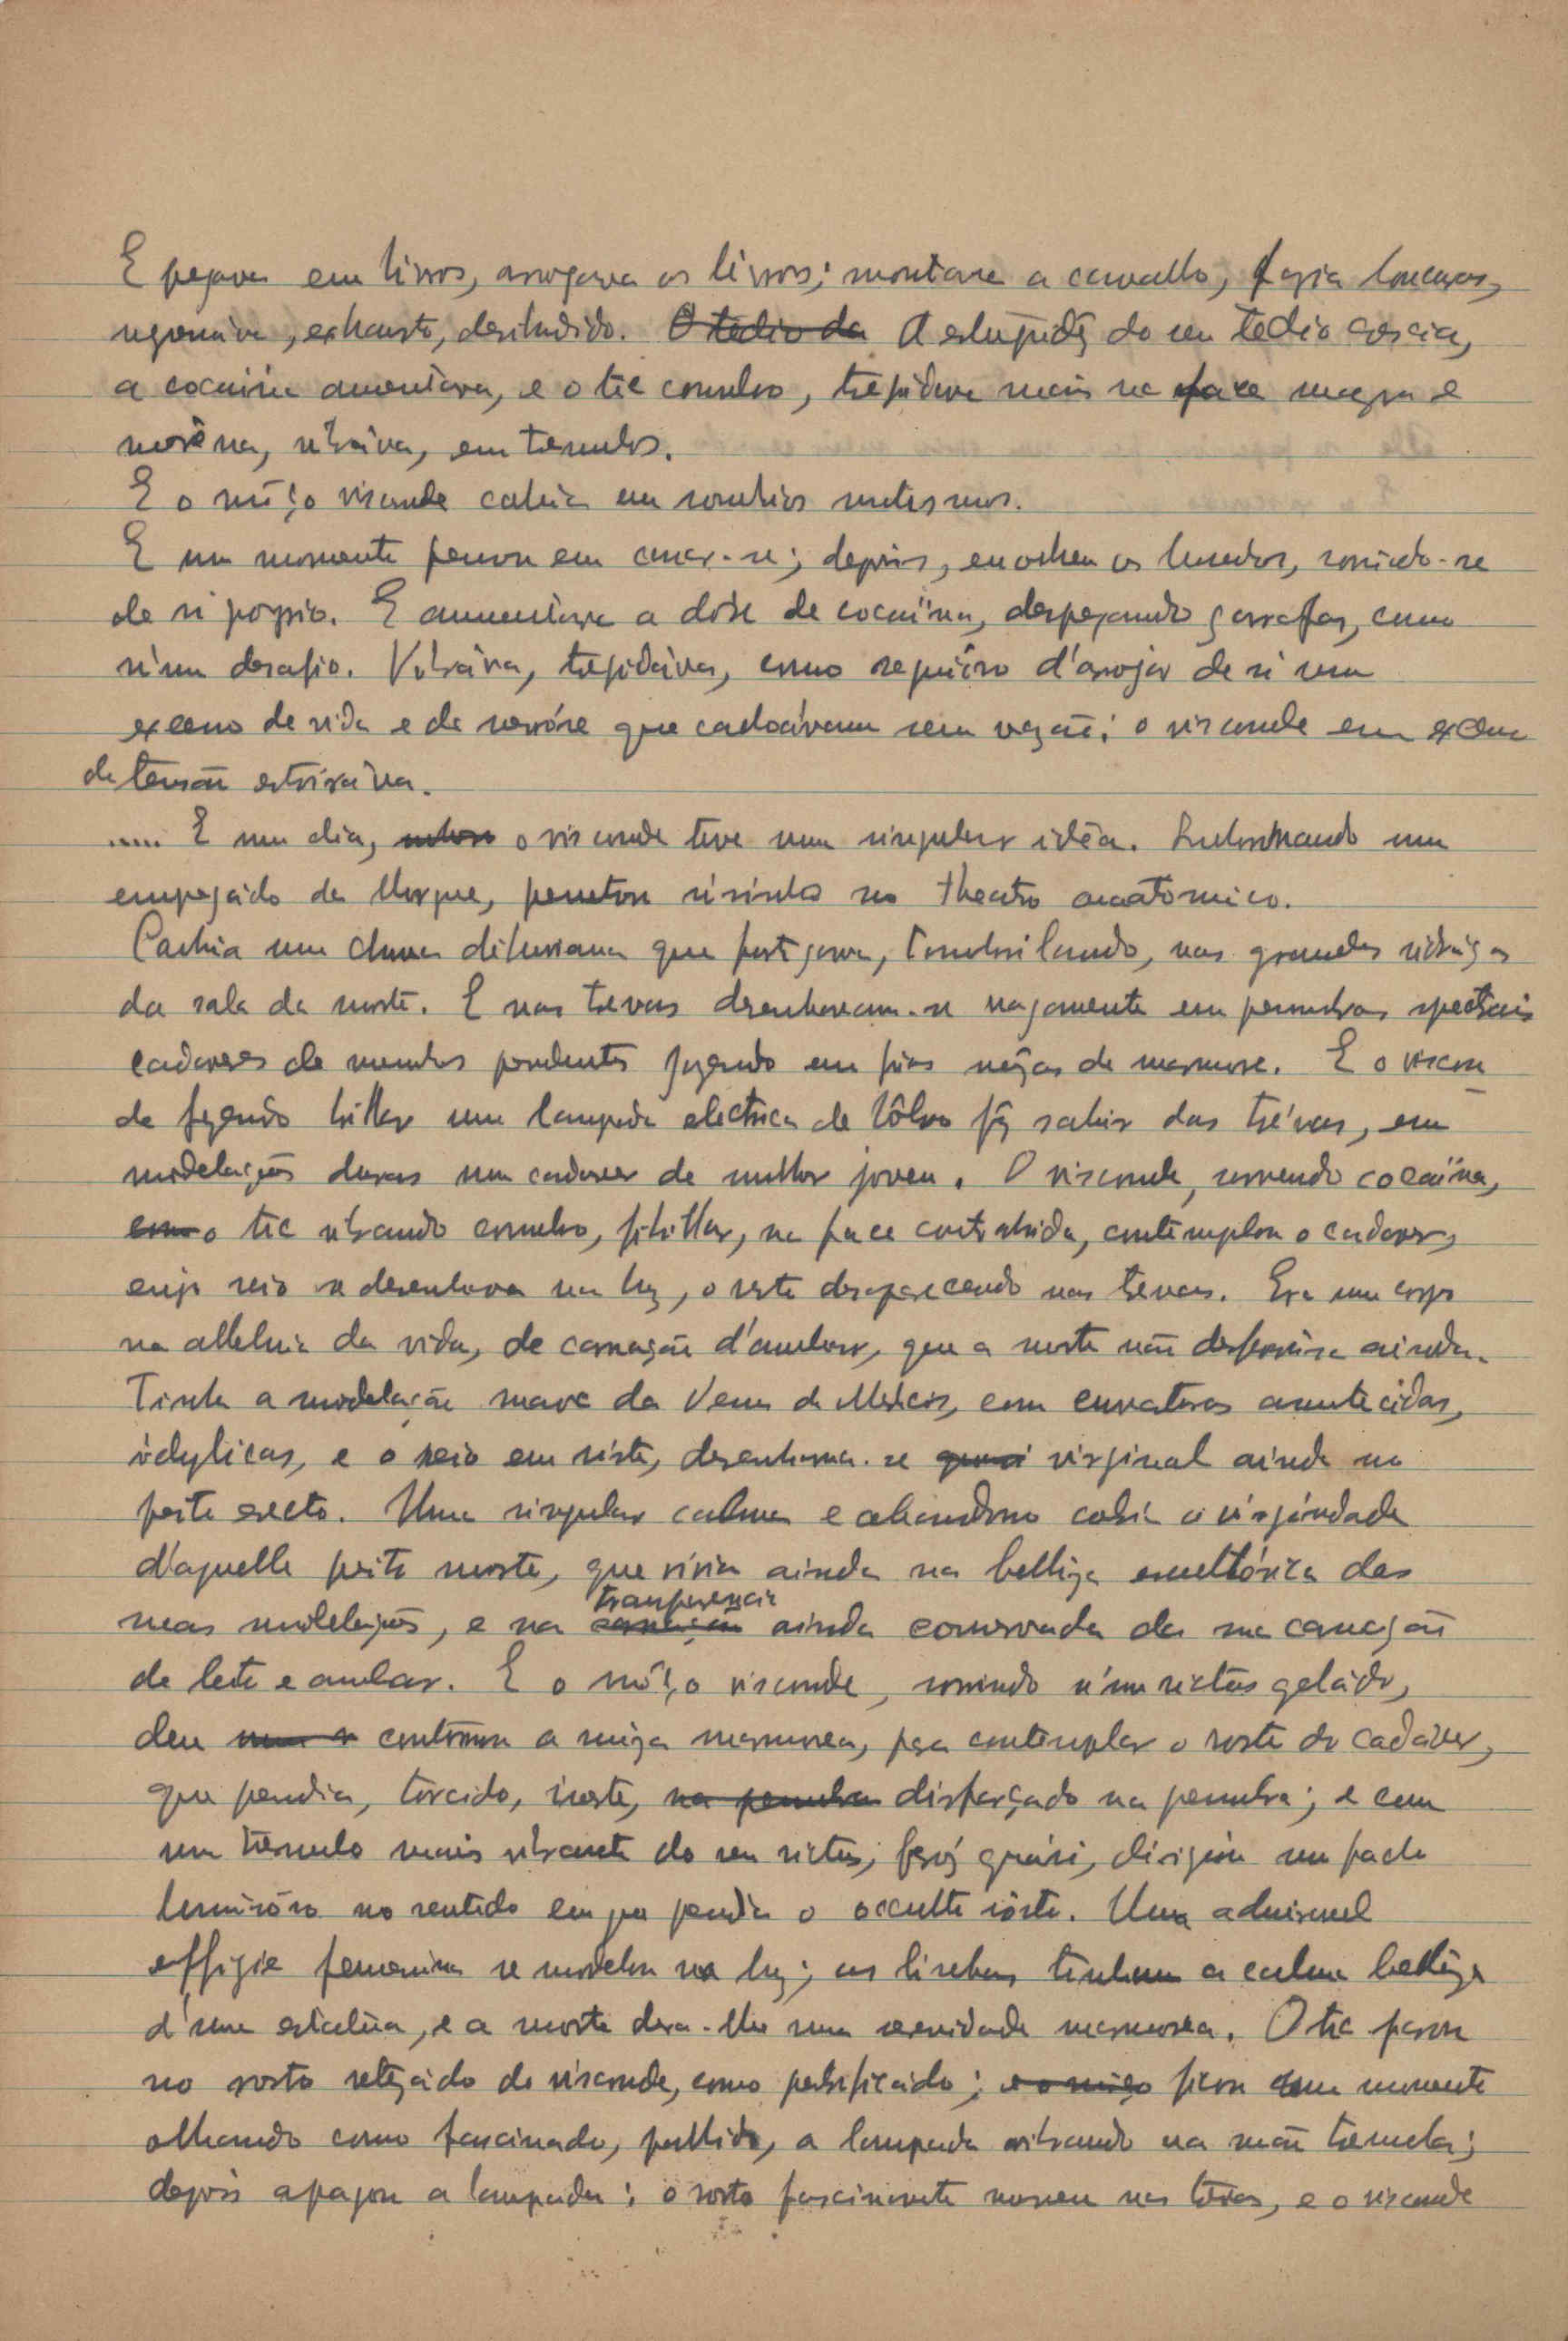 E pegava em livros, arrojava os livros; montava a cavallo, fazia loucuras,
regressava, exhausto, desiludido. O tedio da A estupidez do seu tedio crescia,
a cocaina aumentava, e o tic convulso, trepidava mais na face magra e
morêna, vibráva, em tremulos.
E o môço visconde cahia em sombrios mutismos.
E um momento pensou em casar-se; depois, encolheu os hombros, sorrindo-se
de si proprio. E aumentava a dóse de cocaïna, despejando garrafas, como
n'um desafio. Vibráva, trepidáva, como se d'arrojar de si um
excesso de vida e de nevróse que cachoávam sem vazão; o visconde em excesso
de tensão
..... E um dia, o visconde teve uma singular idêa. Subornando um
empregádo da Morgue, penetrou sósinho no theatro anatomico.
Cachia uma chuva diluviana que fustigava, tamborilando, nas grandes vidraças
da sala da morte. E nas trevas desenhavam-se vagamente em penumbras spectrais
cadaveres de membros pendentes jazendo em frias mêzas de marmore. E o viscon
de fazendo brilhar uma lampada electrica de bôlso fêz sahir das trévas, em
modelações duras um cadaver de mulher joven. O visconde, sorvendo cocaïna,
com o tic vibrando convulso, fibrillar, na face contrahida, contemplou o cadaver,
cujo seio se desenhava na luz, o resto desaparecendo nas trevas. Era um corpo
na alleluia da vida, de carnação d'ambar, que a morte não desfeára ainda.
Tinha a modelação suave da Venus de Medicis, com curvaturas
idylicas, e o seio em riste, desenhava-se quasi virginal ainda no
peito erecto. Uma singular calma e abandono cobria a virgindade
d'aquelle peito morto, que vivia ainda na belleza esculttórica das
suas modelações, e na carnação transparencia ainda conservada da sua carnação
de leite e ambar. E o môço visconde, sorrindo n'um rictus geládo,
deu contornou a mêza marmorea, para contemplar o rosto do cadáver,
que pendia, torcido, inerte, na penumbra disfarçado na penumbra; e com
um trémulo mais vibrante do seu rictus, feroz quási, dirigiu um facho
luminóso no sentido em que pendia o occulto rôsto. Uma admiravel
effigie femenina se modelou na luz; as linhas tinham a calma belleza
d'uma estatua, e a morte dera-lhe uma serenidade marmorea. O tic parou
no rosto retezado do visconde, como petrificádo; e o môço ficou um momento
olhando como fascinado, pallido, a lampada vibrando na mão tremula;
depois apagou a lampada; o rosto fascinante morreu nas trévas, e o visconde